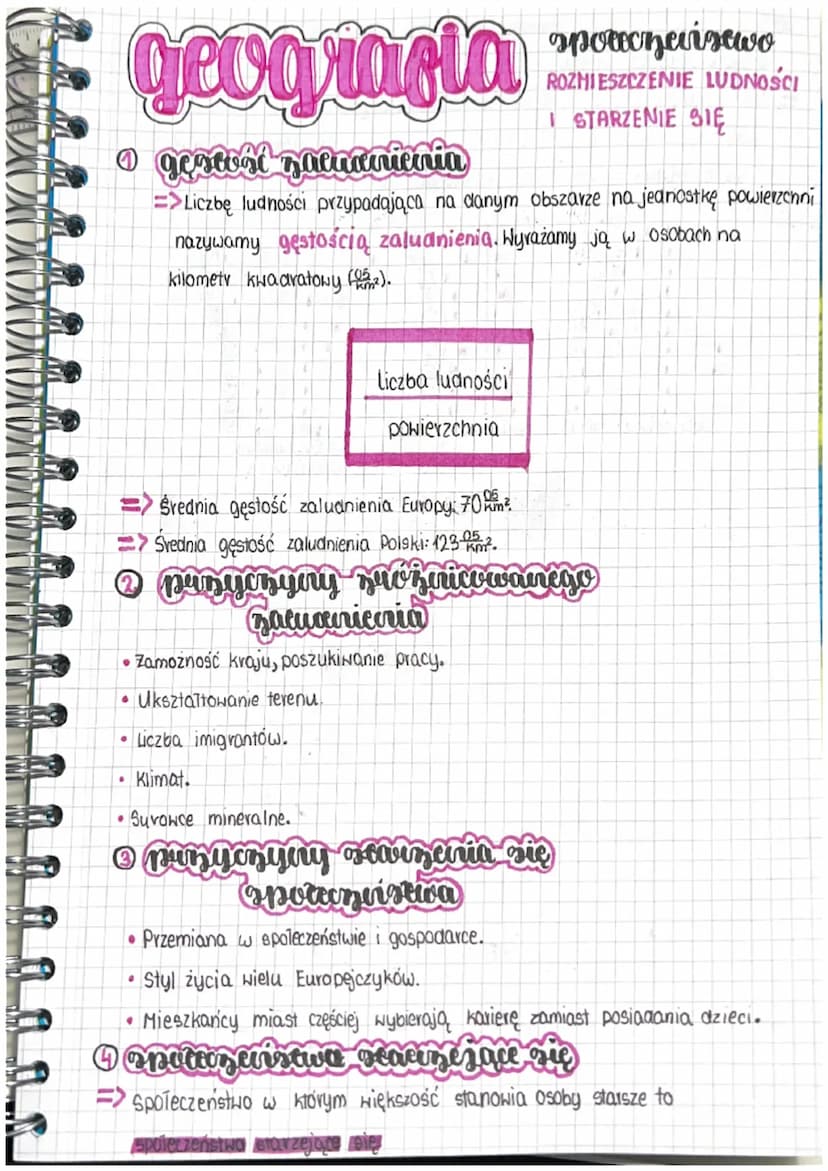 geografia
społeczeństwo
ROZMIESZCZENIE LUDNOŚCI
I STARZENIE SIĘ
1 gęstość zaludnienia
=> Liczbę ludności przypadająca na danym obszarze na jednostkę powierzchni
nazywamy gęstością zaludnienia. Wyrażamy ją w osobach na
kilometr kwadratowy (os/km²).
liczba ludności
powierzchnia
=> Średnia gęstość zaludnienia Europy: 70 os/km².
=> Średnia gęstość zaludnienia Polski: 123 os/km².
2 przyczyny zróżnicowanego
zaludnienia
• Zamożność kraju, poszukiwanie pracy.
• Ukształtowanie terenu.
• Liczba imigrantów.
• Klimat.
• Surowce mineralne.
3 przyczyny starzenia się
społeczeństwa
• Przemiana w społeczeństwie i gospodarce.
• Styl życia wielu Europejczyków.
• Mieszkańcy miast częściej wybierają karierę zamiast posiadania dzieci.
4 społeczeństwa starzejące się
=> Społeczeństwo w którym większość stanowia osoby starsze to
społeczeństwo starzejące się